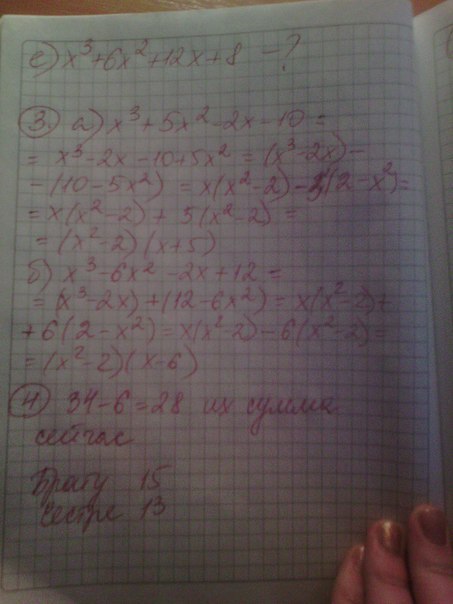 е) x³+6x²+12x+8 -?
3. а) x³+5x²-2x-10=
= x³-2x-10+5x² = (x³-2x)-
-(10-5x²) = x(x²-2)-5(2-x²)=
= x(x²-2)+5(x²-2)=
= (x²-2)(x+5)
б) x³-6x²-2x+12=
= (x³-2x)+(12-6x²)=x(x²-2)+
+6(2-x²)=x(x²-2)-6(x²-2)=
= (x²-2)(x-6)
4 34-6=28 их сумма
сейчас
Брату 15
Сестре 13